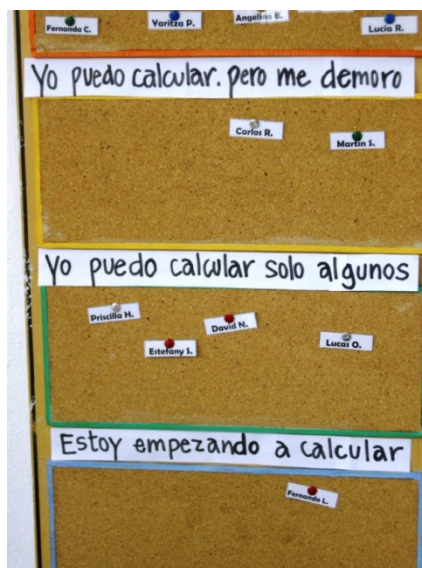 Fernando C. Yaritza P. Angelina B. Lucia R.
Yo puedo calcular. pero me demoro
Carlos R. Martin S.
Yo puedo calcular solo algunos
Priscilla H. David N.
Estefany S. Lucas O.
Estoy empezando a calcular
Fernando L.